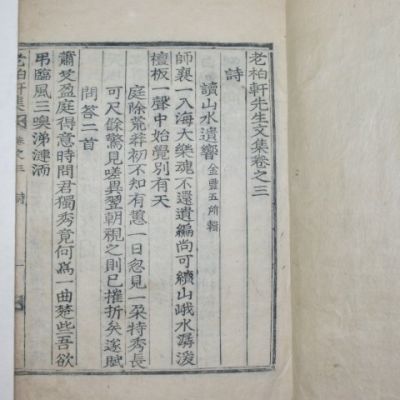 老柏軒先生文集卷之三
詩
讀山水遺響 金雲五所輯
師襄一入海大樂魂不還遺編尚可續山峨水潺湲
檀板一聲中始覺別有天
庭除荒莽初不知有蕙一日忽見一朶特秀長
可尺餘驚見嗟異翌朝視之則已摧折矣遂賦
問答二首
蕭艾盈庭得意時問君獨秀竟何爲一曲楚些吾欲
弔臨風三嗅涕漣洏
老柏軒集 卷之三 詩 一